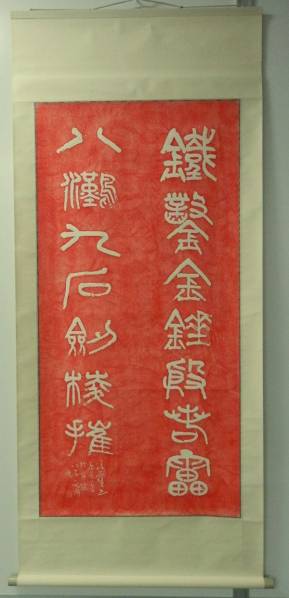 鐵鑿金錘殷若雷
八灘九石劍棱摧